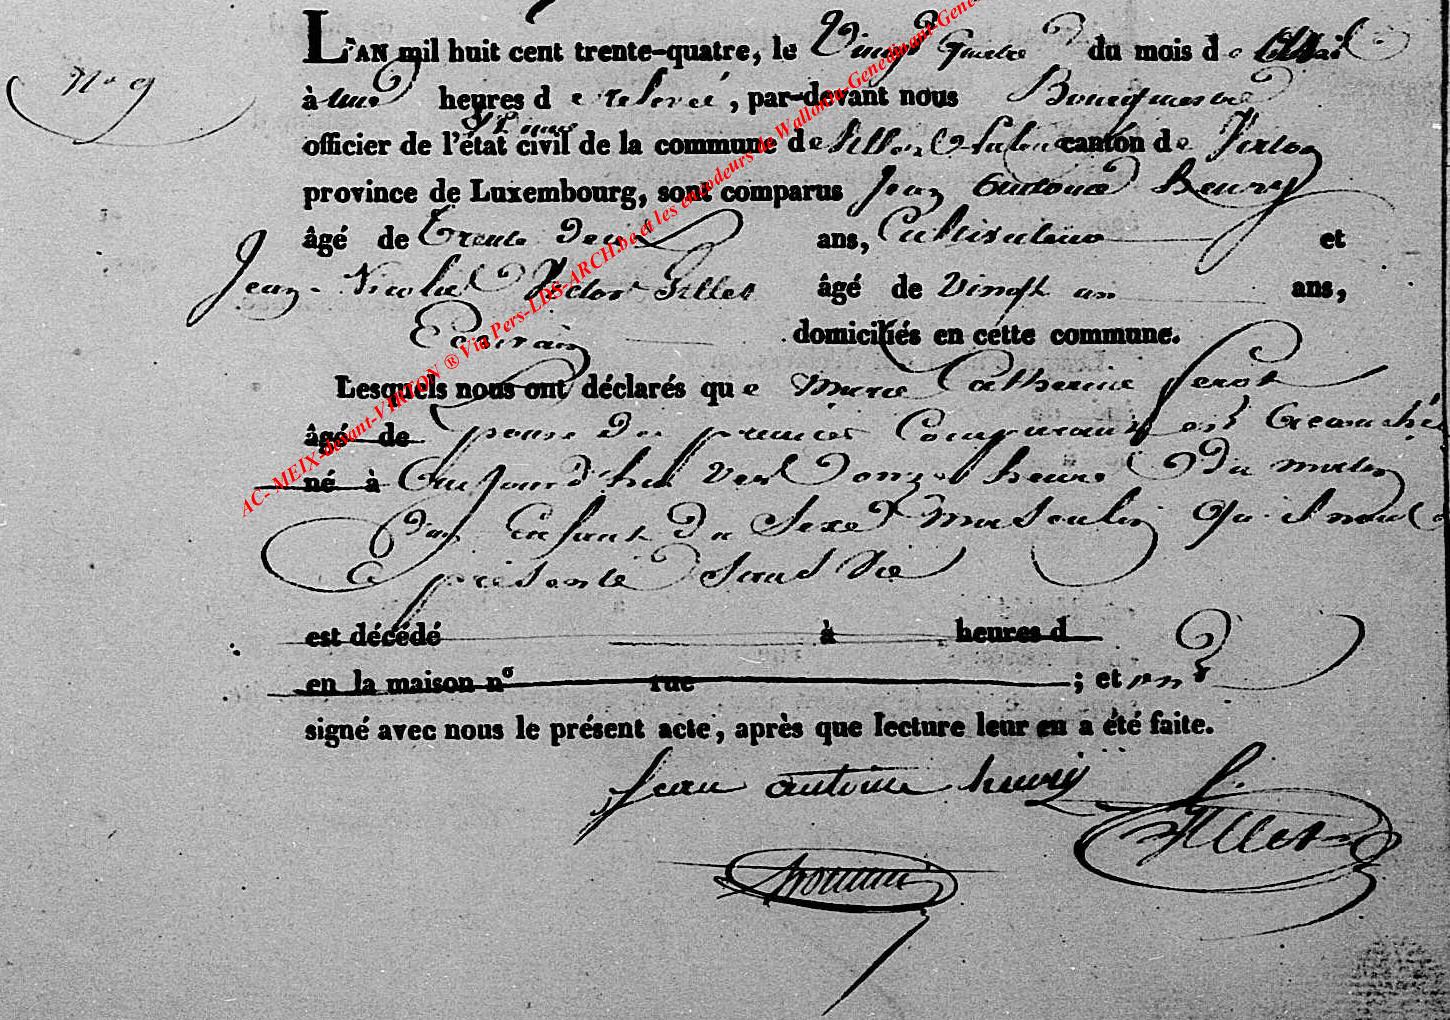 L'AN mil huit cent trente-quatre, le Vingt Quatre du mois de avril
N° 9
à une heures de relevé, par-devant nous Bourguemestre
officier de l'état civil de la commune de Villers canton de Virton
province de Luxembourg, sont comparus Jean Antoine Henry
âgé de Trente Deux ans, Cultivateur et
Jean Nicolas Victor Gillet âgé de Vingt un ans,
Ecrivain domiciliés en cette commune.
Lesquels nous ont déclarés que Marie Catherine Perot
âgé de Epouse du premier Comparant est accouché
né à Aujourd'hui vers onze heures Du matin
d'un Enfant du Sexe masculin qu'il nous a
présenté sans Vie
est décédé à heures d
en la maison n° rue ; et ont
signé avec nous le présent acte, après que lecture leur en a été faite.
Jean antoine henry
Gillet
AC- MEIX-devant-VIRTON ® Via Pers-LDS-ARCH.be et les encodeurs de Wallonia-Genedinant-Gene